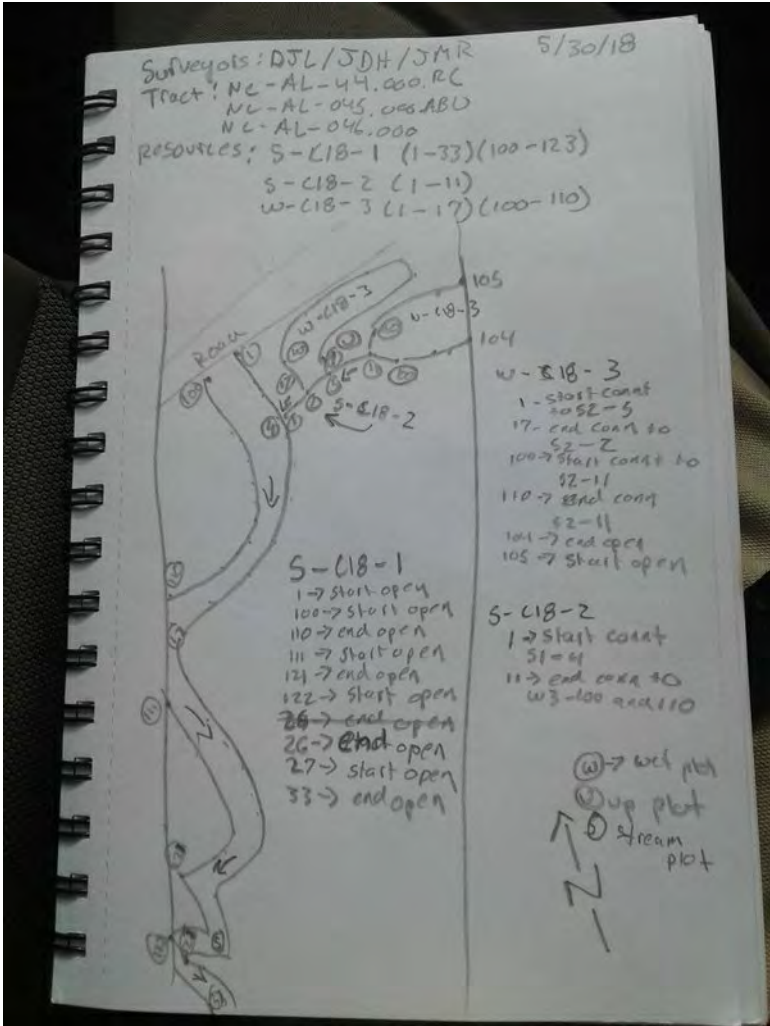 Surveyors: DJL/JDH/JMR 5/30/18
Tract: NC-AL-44.000.RC
NC-AL-045.000.ABU
NC-AL-046.000
Resources: S-C18-1 (1-33)(100-123)
S-C18-2 (1-11)
W-C18-3 (1-17)(100-110)
Road
W-C18-3
W-C18-3
105
104
S-C18-2
W-C18-3
1-start connt
to S2-5
17-end conn to
S2-2
100→start connt to
S2-11
110→end conn
S2-11
104→end open
105→start open
S-C18-1
1→start open
100→start open
110→end open
111→start open
121→end open
122→start open
26→end open
26→end open
27→start open
33→end open
S-C18-2
1→start connt
S1-4
11→end conn to
W3-100 and 110
W→wet plot
U up plot
S stream
plot
N